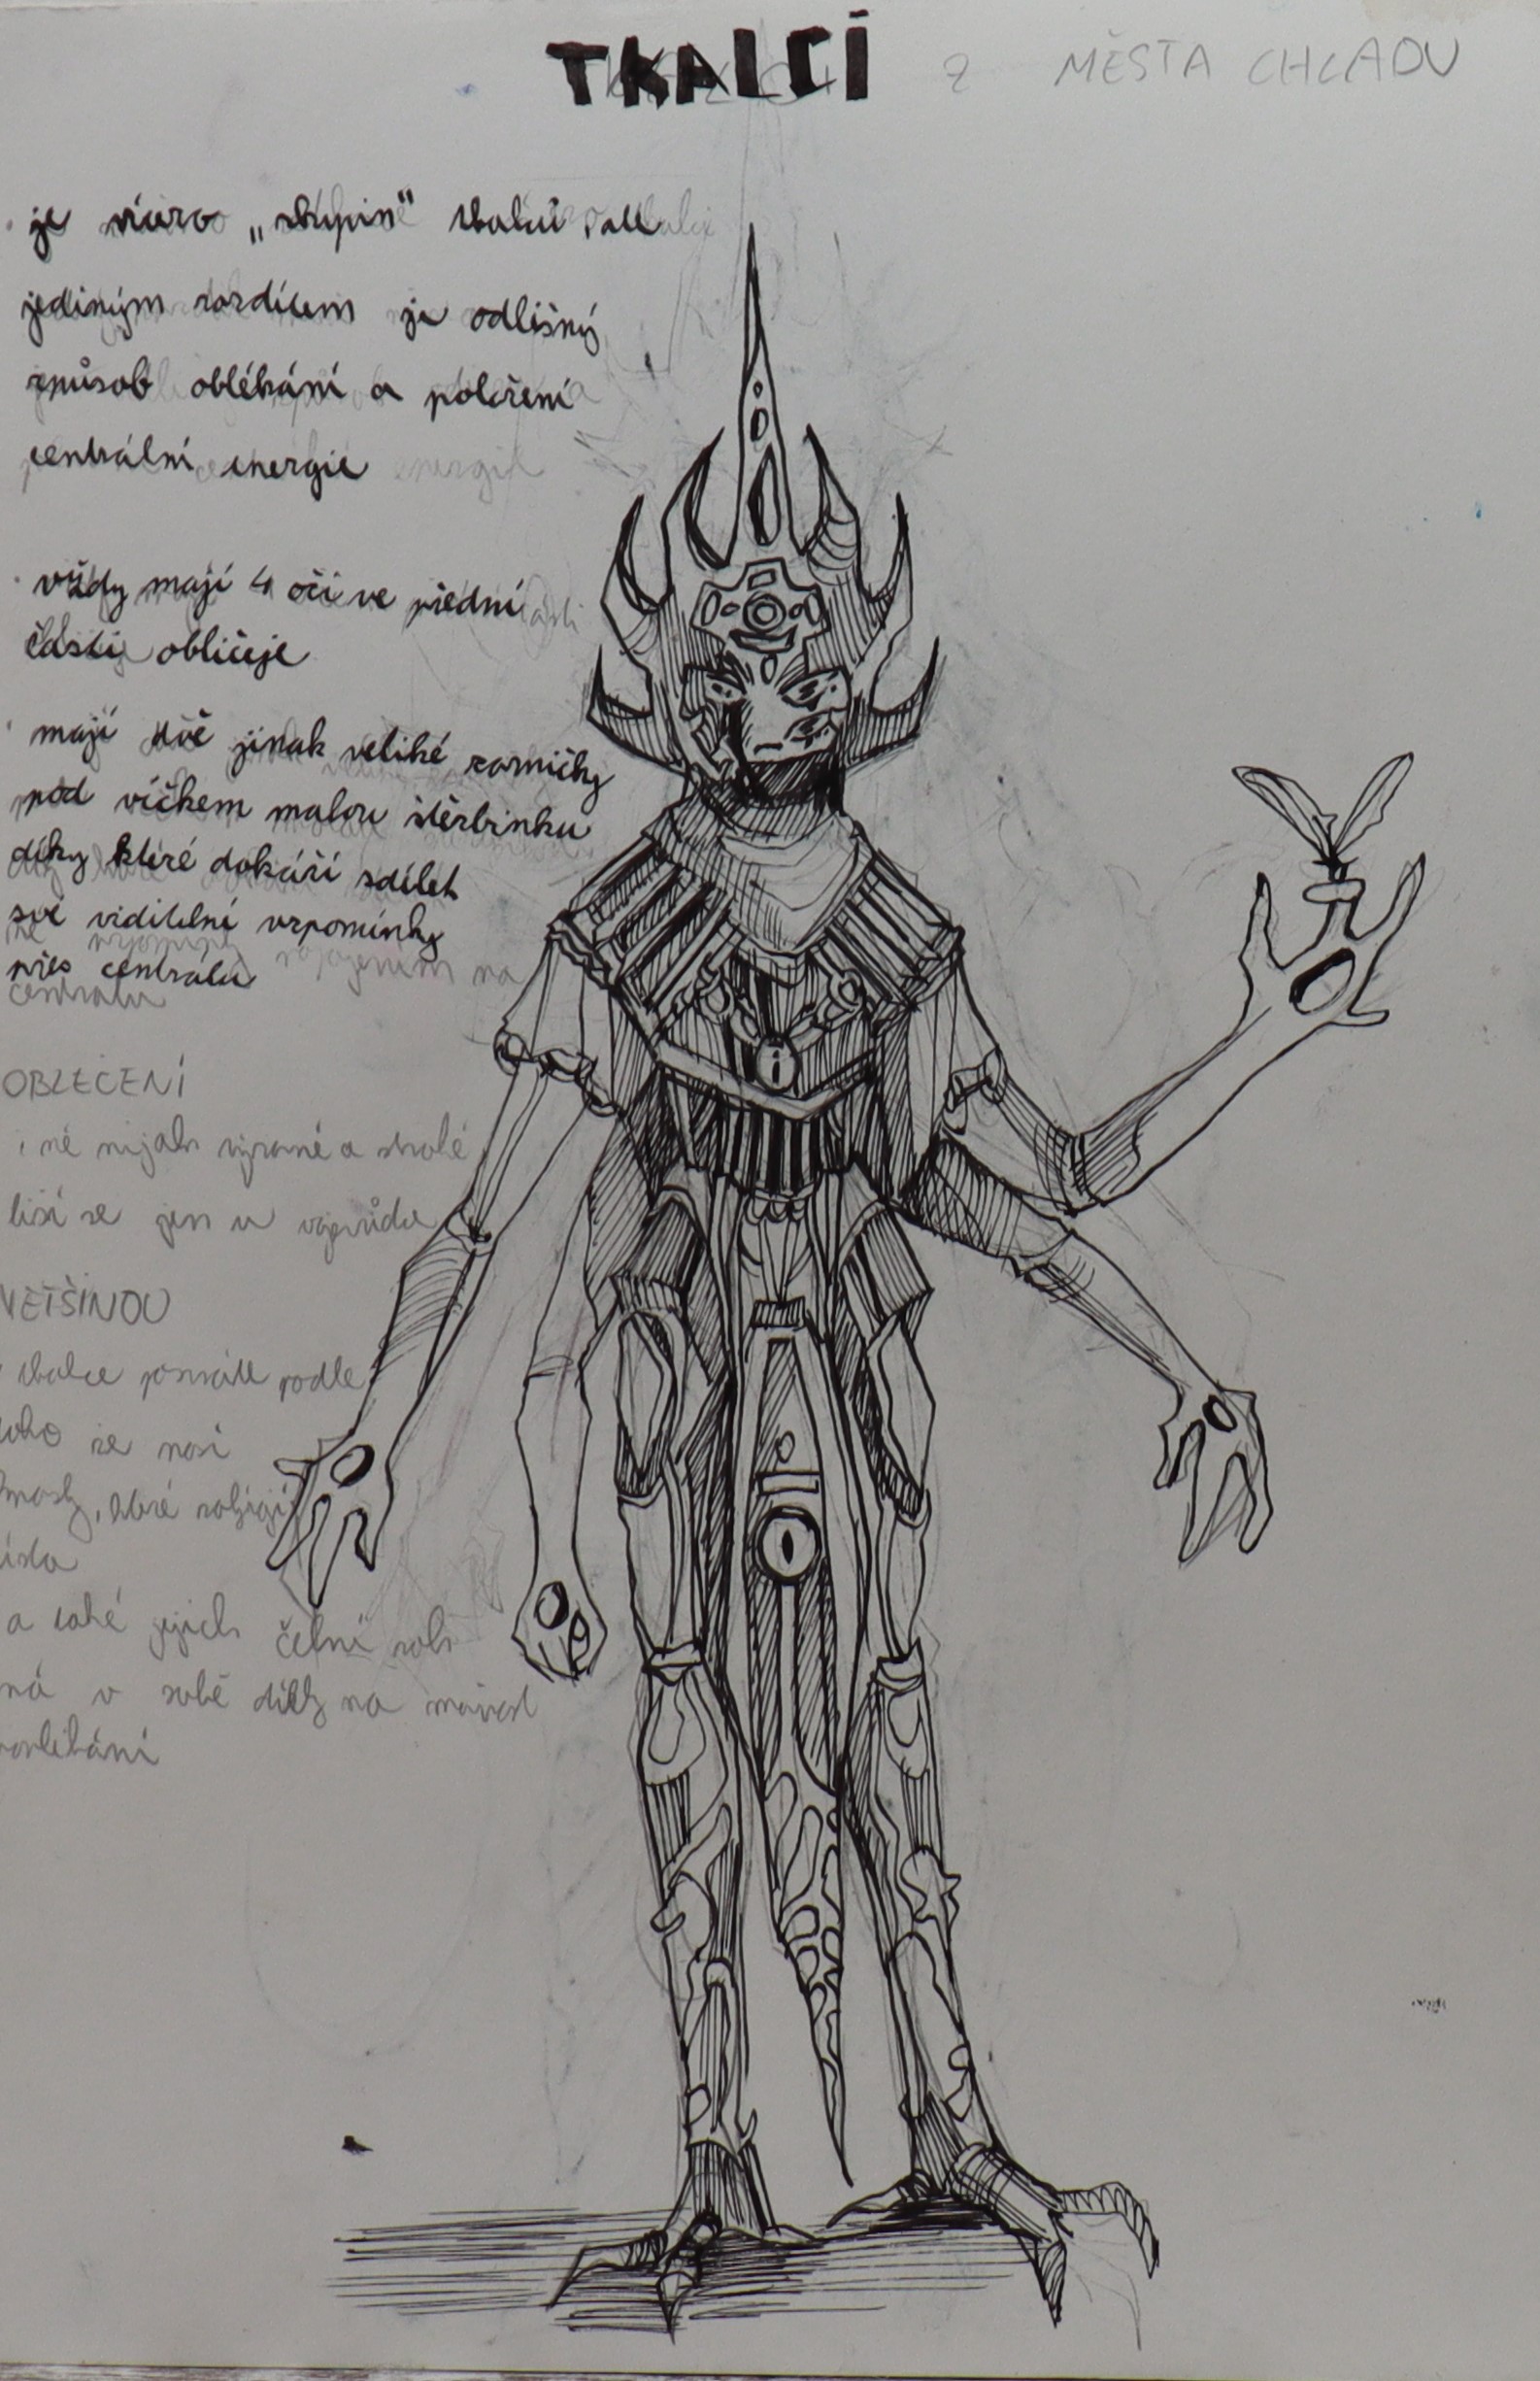 TKALCÍ z MĚSTA CHLADU
je vícero „skupin" tkalcú
jediným rozdílem je odlišný
způsob oblékání a pokožení
centrální energie
vždy mají 4 oči ve přední
části obličeje
mají dvě jinak veliké zorničky
pod víčkem malou štěrbinku
díky které dokáží sdílet
své viditelné vzpomínky
přes centrálu
OBLEČENÍ
né nijak výrazné a stralé
liší se jen u
VĚTŠINOU
tkalce poznáte podle
toho že nosí
které
a také jejich čelní roh
má v sobě na